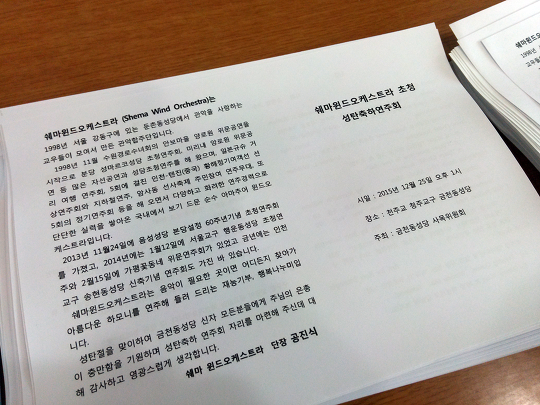 쉐마윈드오케스트라 (Shema Wind Orchestra)는
1998년 서울 강동구에 있는 둔촌동성당에서 관악을 사랑하는
교우들이 모여서 만든 관악합주단입니다.
1998년 11월 수원경로수녀회의 안보마을 양로원 위문공연을
시작으로 분당 성마르코성당 초청연주회, 미리내 양로원 위문공
연 등 많은 자선공연과 성당초청연주를 해 왔으며, 일본규슈 거
리 여행 연주회, 5회에 걸친 인천-텐진(중국) 황해정기여객선 선
상연주회와 지하철연주, 암사동 선사축제 주민참여 연주무대, 또
5회의 정기연주회 등을 해 오면서 다양하고 화려한 연주경력으로
단단한 실력을 쌓아온 국내에서 보기 드문 순수 아마추어 윈드오
케스트라입니다.
2013년 11월24일에 음성성당 본당설정 60주년기념 초청연주회
를 가졌고, 2014년에는 1월12일에 서울교구 행운동성당 초청연
주와 2월15일에 가평꽃동네 위문연주회가 있었고 금년에는 인천
교구 송현동성당 신축기념 연주회도 가진 바 있습니다.
쉐마윈드오케스트라는 음악이 필요한 곳이면 어디든지 찾아가
아름다운 하모니를 연주해 들려 드리는 재능기부, 행복나누미입
니다.
성탄절을 맞이하여 금천동성당 신자 모든분들에게 주님의 은총
이 충만함을 기원하며 성탄축하 연주회 자리를 마련해 주신데 대
해 감사하고 영광스럽게 생각합니다.
쉐마 윈드오케스트라 단장 공진식
쉐마윈드오케스트라 초청
성탄축하연주회
시일 : 2015년 12월 25일 오후 1시
장소 : 천주교 청주교구 금천동성당
주최 : 금천동성당 사목위원회
쉐마윈드오케
1998년
교우들